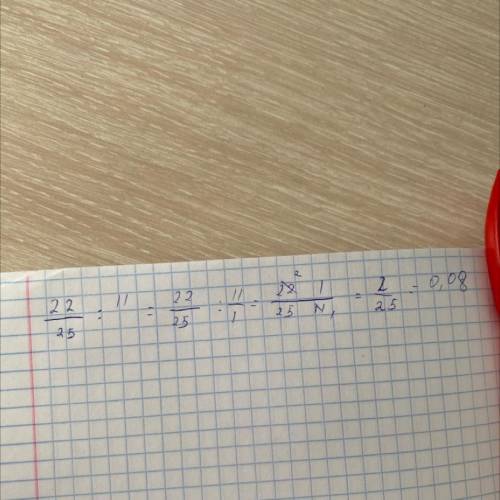 22/25 : 11 = 22/25 : 11/1 = 22² 1/25 11₁ = 2/25 = 0,08